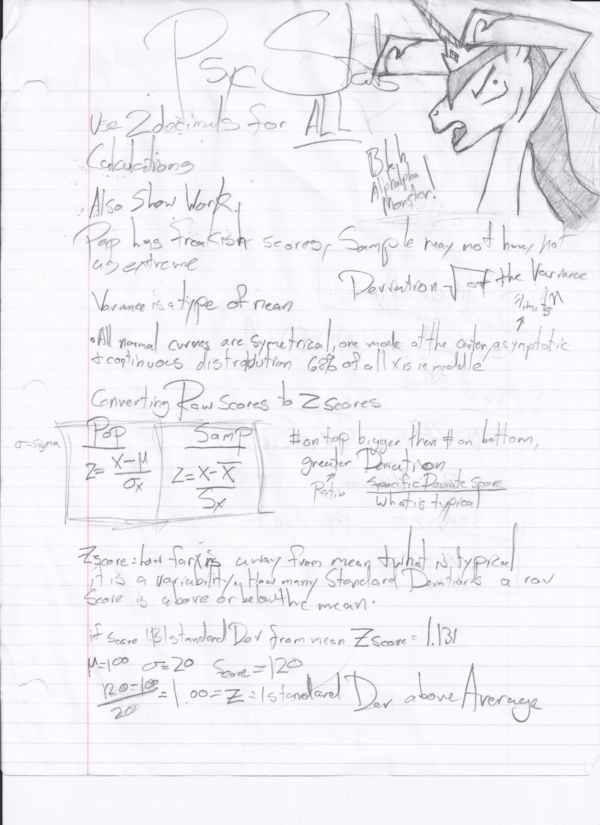 Psy Stats
Use 2 decimals for ALL
Calculations
Bleh
Alphalpha
Monster!
Also Show Work.
Pop has freakish scores, Sample may not have, not
as extreme
Deviation √ of the Variance
Variance is a type of mean
• All normal curves are symetrical, one mode at the center, asymptotic
+ continuous distrobution 68% of all X is in middle
Converting Raw Scores to Z scores
σ=sigma
Pop
Z = X-μ
σx
Samp
Z = X-X̄
Sx
# on top bigger then # on bottom,
greater Deviation
Ratio
Specific Deviate Score
What is typical
Z score = how far X is away from mean + what is typical
it is a variability. How many Standard Deviations a raw
Score is above or below the mean.
if score 1.131 standard Dev from mean Z score = 1.131
μ=100 σ=20 Score=120
120-100
20
= 1.00 = Z = 1 standard Dev above Average